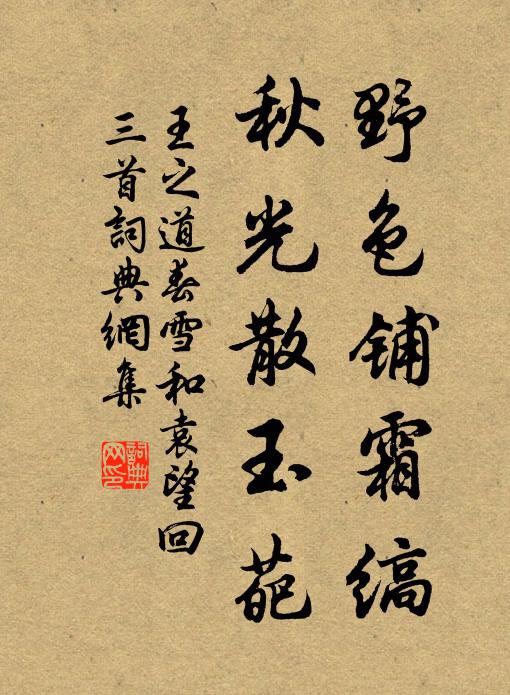 野色铺霜缟
秋光散玉葩
王之道春雪和袁望回
三首詞典網集
詞典
网印